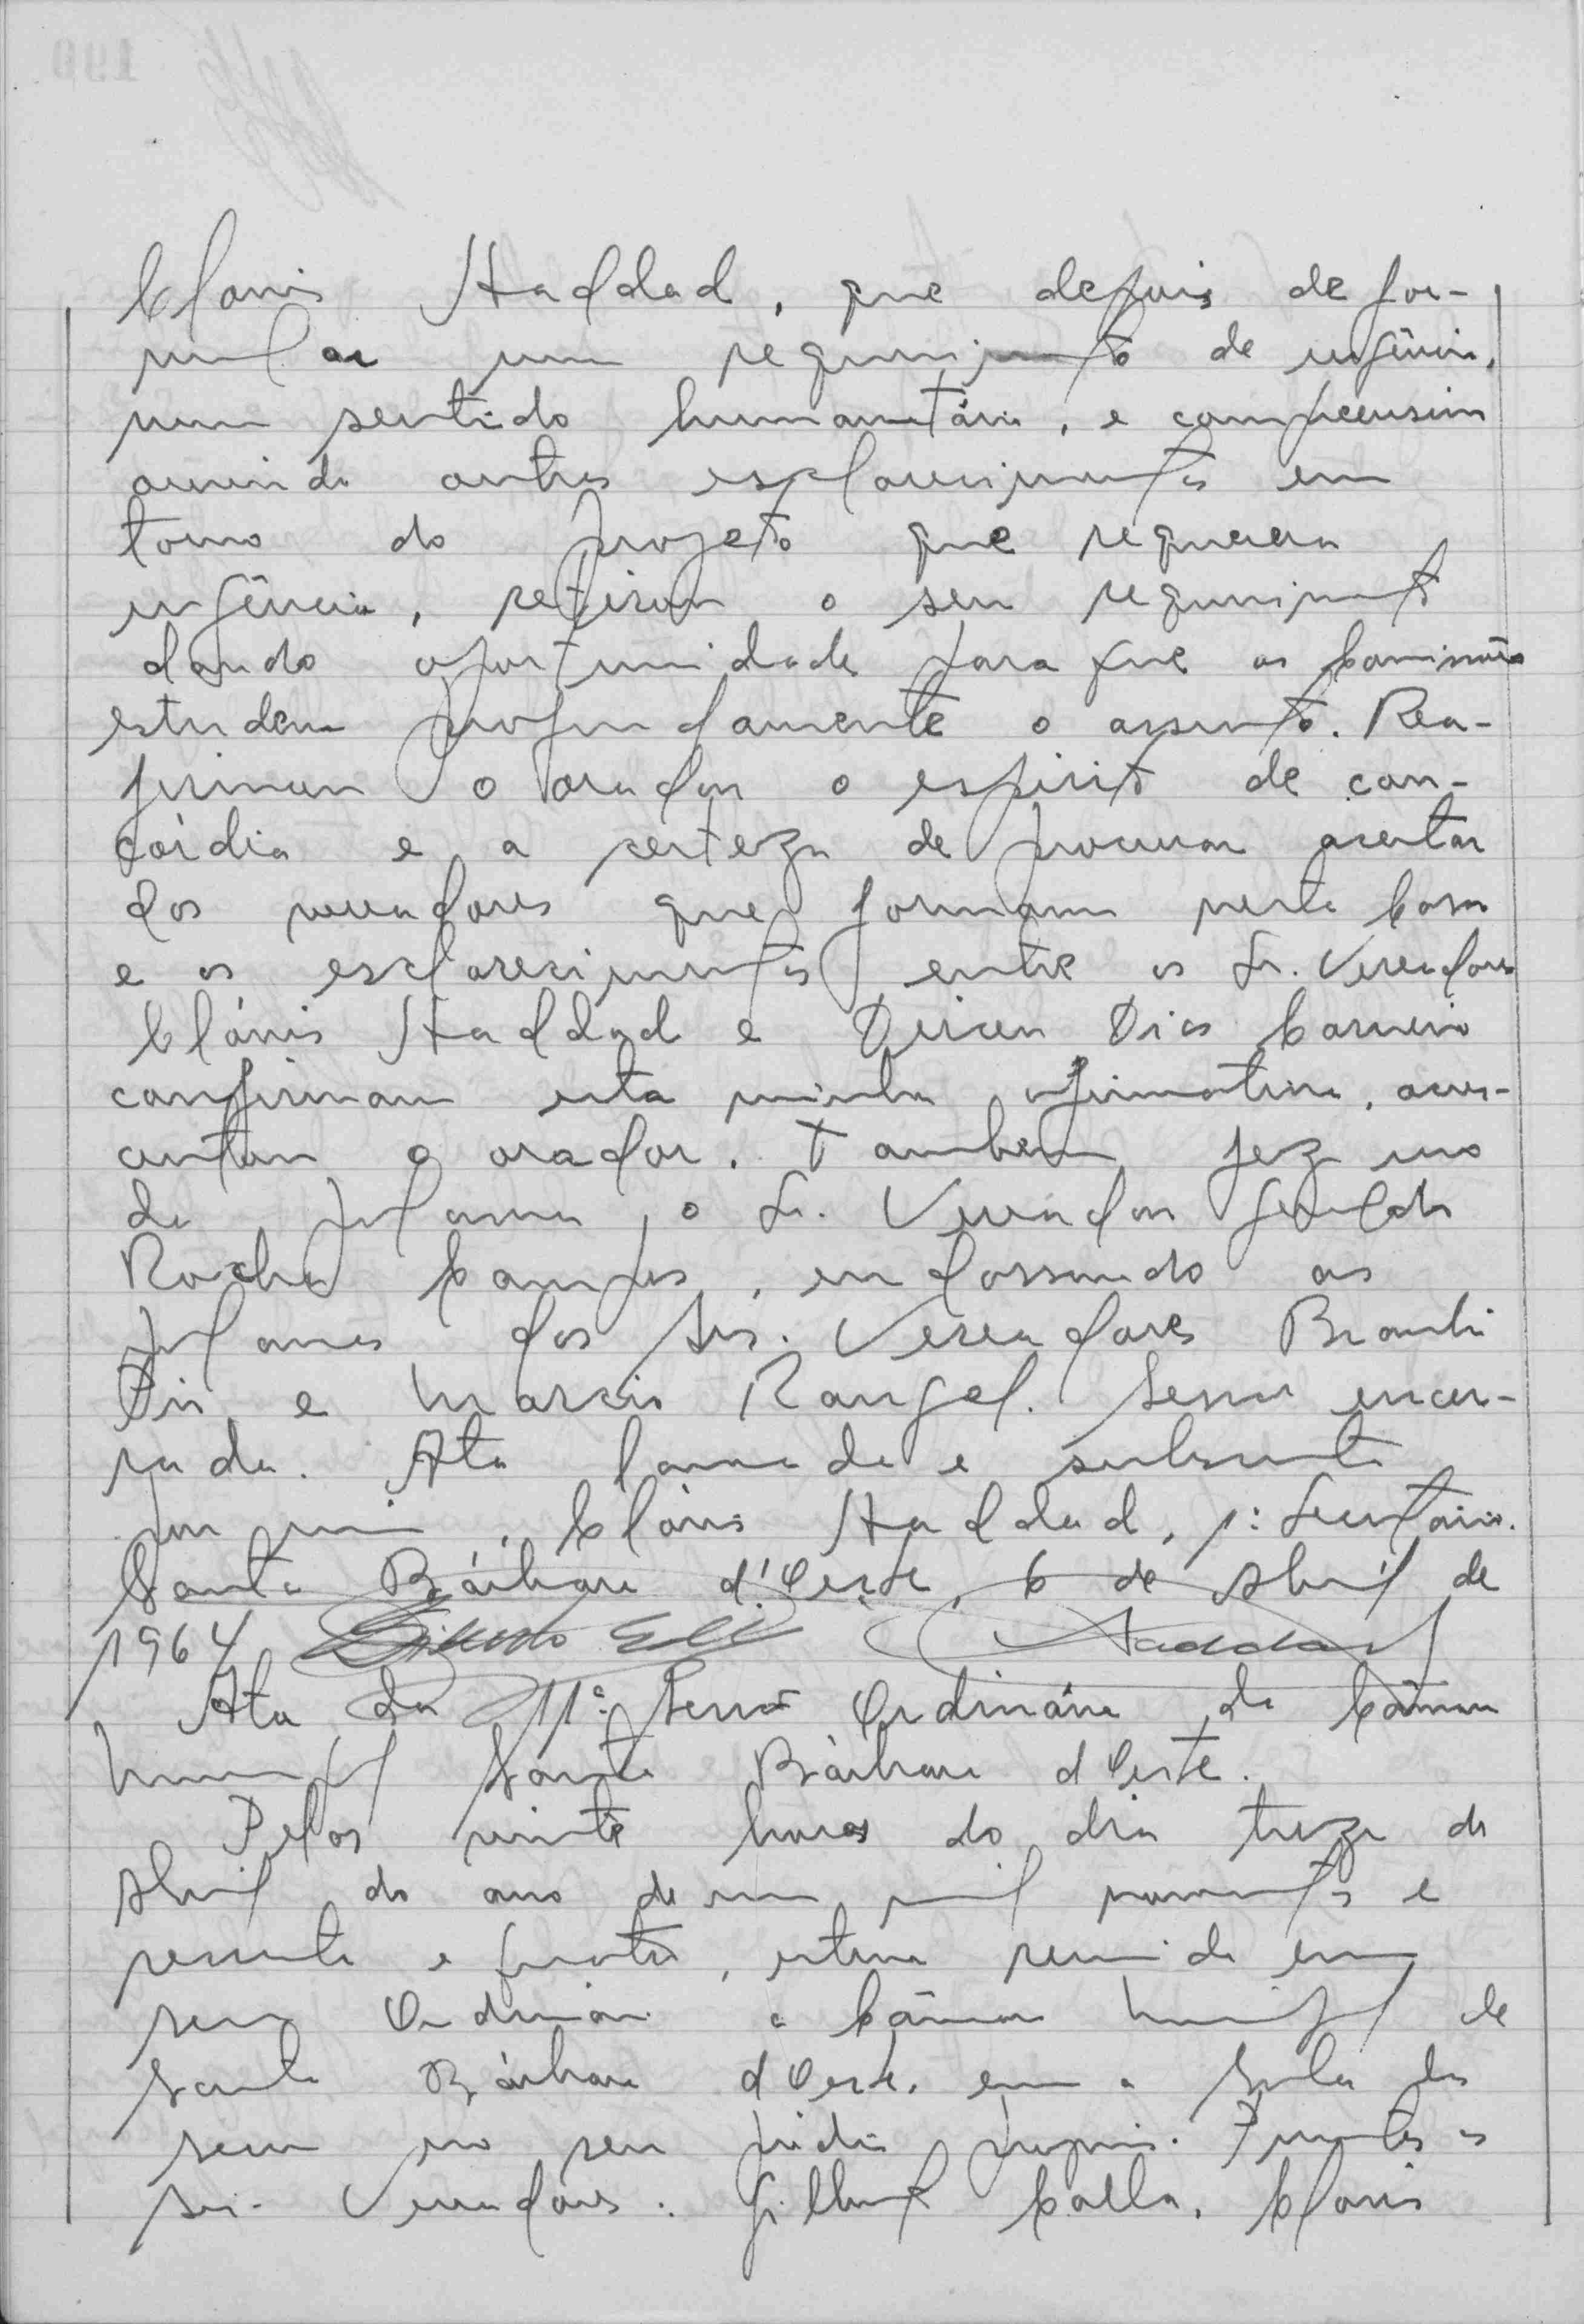 Clovis Haddad, que depois de for-
mular um requerimento de urgência,
num sentido humanitário, e compreensivo
ouvindo outros esclarecimentos em
torno do projeto que requerera
urgência, retirou o seu requerimento
dando oportunidade para que as Comissões
estudem profundamente o assunto. Rea-
firmou o orador o espirito de con-
córdia e a certeza de procurar acertar
dos vereadores que formam nesta Casa
e os esclarecimentos entre os Sr. Vereadores
Clóvis Haddad e Dirceu Dias Carneiro
confirmam esta minha afirmativa, acres-
centou o orador. Tambem fez uso
da palavra, o Sr. Vereador Geraldo
Rocha Campos, endossando as
palavras dos Srs. Vereadores
e Marcio Rangel. Sessão encer-
rada. Ata lavrada e subscrita
por mim, Clóvis Haddad, 1º Secretário.
Santa Bárbara d'Oeste, 6 de Abril de
1964 Haddad
Ata da 11ª Sessão Ordinária da Câmara
Municipal Santa Bárbara d'Oeste.
Pelas vinte horas do dia treze de
Abril do ano de um mil novecentos e
sessenta e quatro, esteve reunida em
sessão Ordinária a Câmara Municipal de
Santa Bárbara d'Oeste, em a Sala das
sessões no seu prédio próprio. Presentes os
srs. Vereadores: Clovis